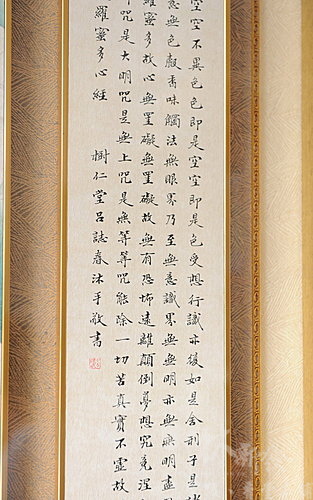 空空不異色色即是空空即是色受想行識亦復如是舍利子是
意無色聲香味觸法無眼界乃至無意識界無無明亦無無明盡
羅蜜多故心無罣礙無罣礙故無有恐怖遠離顛倒夢想究竟涅
咒是大明咒是無上咒是無等等咒能除一切苦真實不虛故
羅蜜多心經 樹仁堂呂誌春沐手敬書